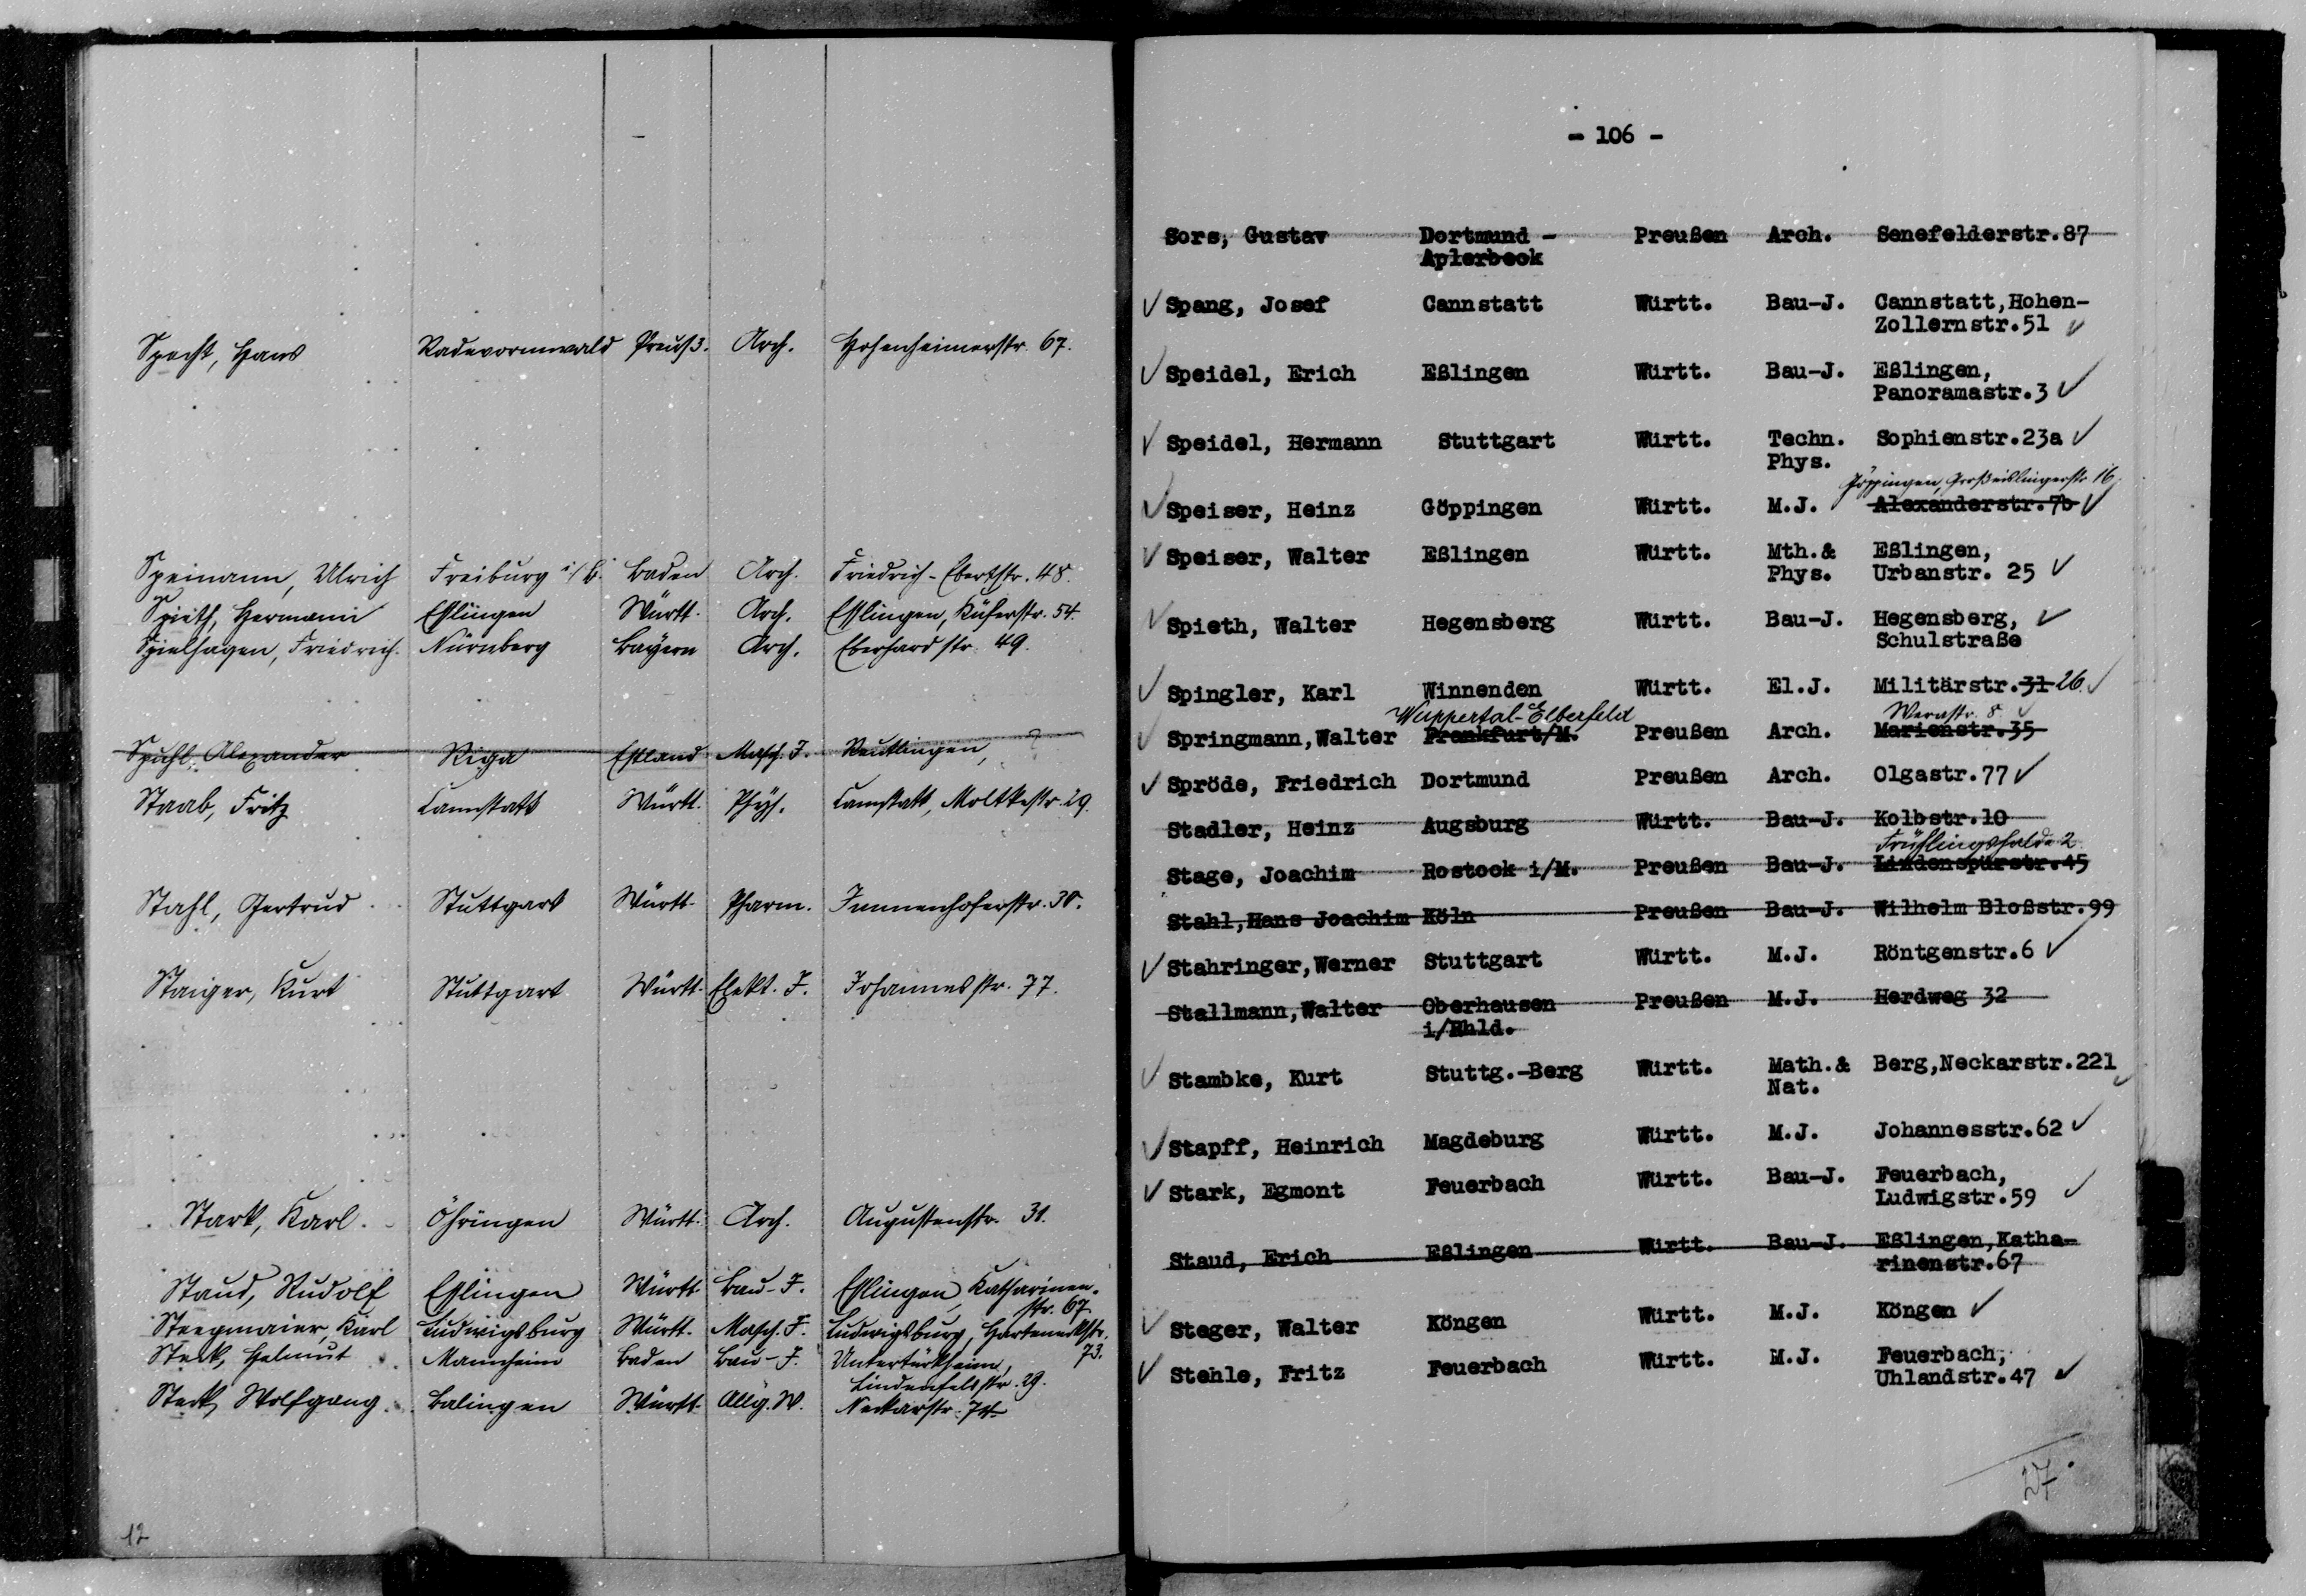 Specht, Hans Radevormwald Preuß. Arch. Hohenheimerstr. 67.
Speimann, Ulrich Freiburg i/B. Baden Arch. Friedrich-Ebertstr. 48.
Spieth, Hermann Esslingen Württ. Arch. Esslingen, Küferstr. 54.
Spielhagen, Friedrich. Nürnberg Bayern Arch. Eberhardstr. 49.
Spuhl, Alexander Riga Estland Masch. J. Reutlingen, ?
Staab, Fritz Cannstatt Württ. Phys. Cannstatt, Moltkestr. 29.
Stahl, Gertrud Stuttgart Württ. Pharm. Immenhoferstr. 38.
Staiger, Kurt Stuttgart Württ. Elekt. J. Johannesstr. 77.
Stark, Karl. Öhringen Württ. Arch. Augustenstr. 31.
Staud, Rudolf Esslingen Württ. Bau-J. Esslingen, Katharinen-
str. 67.
Steegmaier, Karl Ludwigsburg Württ. Masch. J. Ludwigsburg, Harteneckstr.
73.
Steck, Helmut Mannheim Baden Bau-J. Untertürkheim,
Lindenfelsstr. 29.
Steck, Wolfgang. Balingen Württ. Allg. W. Neckarstr. 74
12
- 106 -
Sors, Gustav Dortmund - Preußen Arch. Senefelderstr.87
Aplerbeck
✓ Spang, Josef Cannstatt Württ. Bau-J. Cannstatt,Hohen-
Zollernstr.51 ✓
✓ Speidel, Erich Eßlingen Württ. Bau-J. Eßlingen,
Panoramastr.3 ✓
✓ Speidel, Hermann Stuttgart Württ. Techn. Sophienstr.23a ✓
Phys.
Göppingen, Großeislingerstr. 16
✓ Speiser, Heinz Göppingen Württ. M.J. Alexanderstr.7b ✓
✓ Speiser, Walter Eßlingen Württ. Mth.& Eßlingen,
Phys. Urbanstr. 25 ✓
✓ Spieth, Walter Hegensberg Württ. Bau-J. Hegensberg, ✓
Schulstraße
✓ Spingler, Karl Winnenden Württ. El.J. Militärstr.31 26. ✓
Wuppertal-Elberfeld Werastr. 8. ✓
✓ Springmann,Walter Frankfurt/M. Preußen Arch. Marienstr.35
✓ Spröde, Friedrich Dortmund Preußen Arch. Olgastr.77 ✓
Stadler, Heinz Augsburg Württ. Bau-J. Kolbstr.10
Frühlingshalde 2
Stage, Joachim Rostock i/M. Preußen Bau-J. Lindenspürstr.45
Stahl,Hans Joachim Köln Preußen Bau-J. Wilhelm Bloßstr.99
✓ Stahringer,Werner Stuttgart Württ. M.J. Röntgenstr.6 ✓
Stallmann,Walter Oberhausen Preußen M.J. Herdweg 32
i/Rhld.
✓ Stambke, Kurt Stuttg.-Berg Württ. Math.& Berg,Neckarstr.221
Nat. ✓
✓ Stapff, Heinrich Magdeburg Württ. M.J. Johannesstr.62 ✓
✓ Stark, Egmont Feuerbach Württ. Bau-J. Feuerbach,
Ludwigstr.59 ✓
Staud, Erich Eßlingen Württ. Bau-J. Eßlingen,Katha-
rinenstr.67
✓ Steger, Walter Köngen Württ. M.J. Köngen ✓
✓ Stehle, Fritz Feuerbach Württ. M.J. Feuerbach,
Uhlandstr.47 ✓
27.